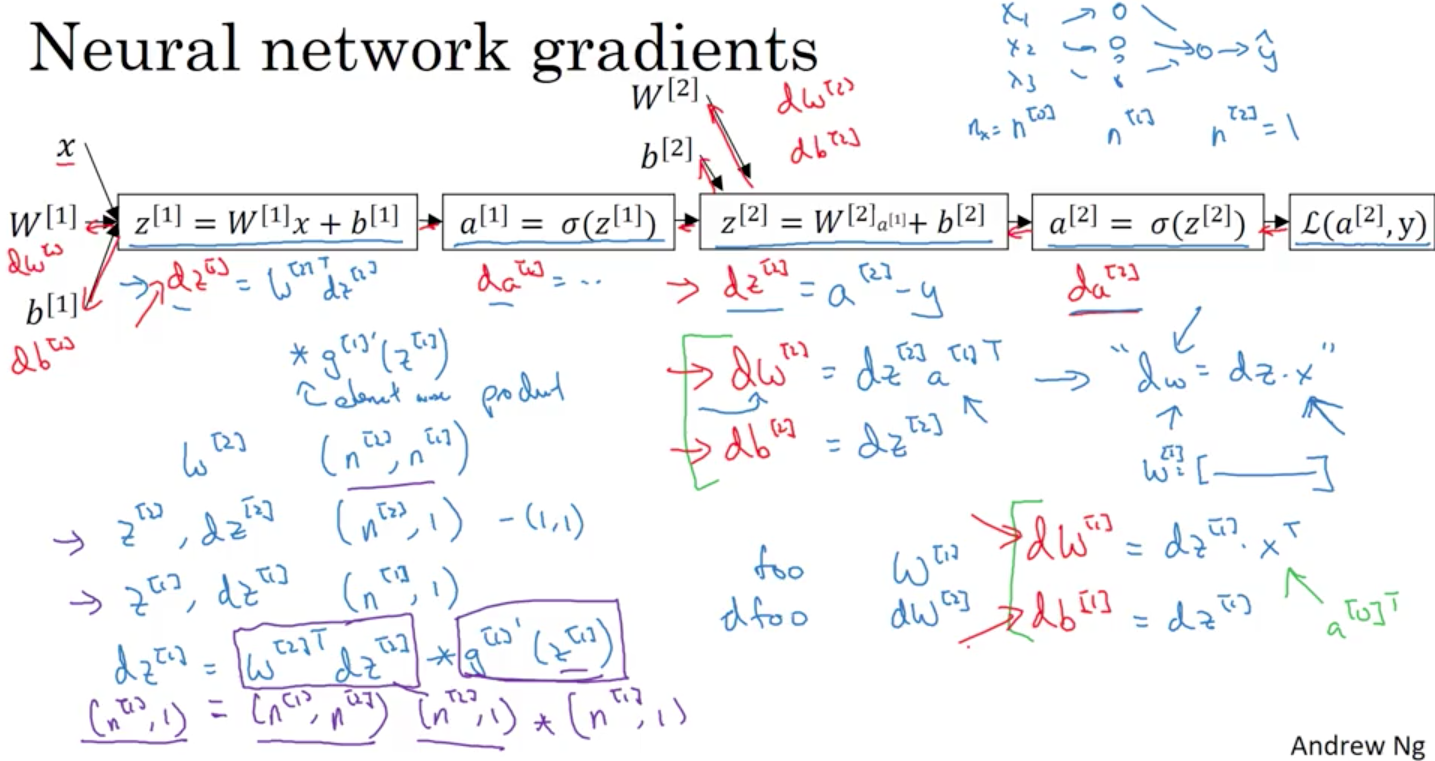 Neural network gradients
x₁ → o
x₂ o → o → ŷ
x₃
nₓ = n^[0] n^[1] n^[2] = 1
W^[2] dw^[2]
b^[2] db^[2]
x
W^[1] z^[1] = W^[1]x + b^[1] a^[1] = σ(z^[1]) z^[2] = W^[2]a^[1] + b^[2] a^[2] = σ(z^[2]) ℒ(a^[2], y)
dw^[1]
b^[1]
db^[1]
→ dz^[1] = W^[2]T dz^[2] da^[1] = ·· → dz^[2] = a^[2] - y da^[2]
* g^[1]'(z^[1])
↑ element wise product
→ dw^[2] = dz^[2] a^[1]T → "dw = dz · x"
→ db^[2] = dz^[2]
W^[2] (n^[2], n^[1])
→ z^[2], dz^[2] (n^[2], 1) - (1,1)
→ z^[1], dz^[1] (n^[1], 1)
dz^[1] = W^[2]T dz^[2] * g^[1]'(z^[1])
(n^[1], 1) = (n^[1], n^[2]) (n^[2], 1) * (n^[1], 1)
foo W^[1]
dfoo dW^[2]
dW^[1] = dz^[1] · x^T
db^[1] = dz^[1]
a^[0]T
Andrew Ng